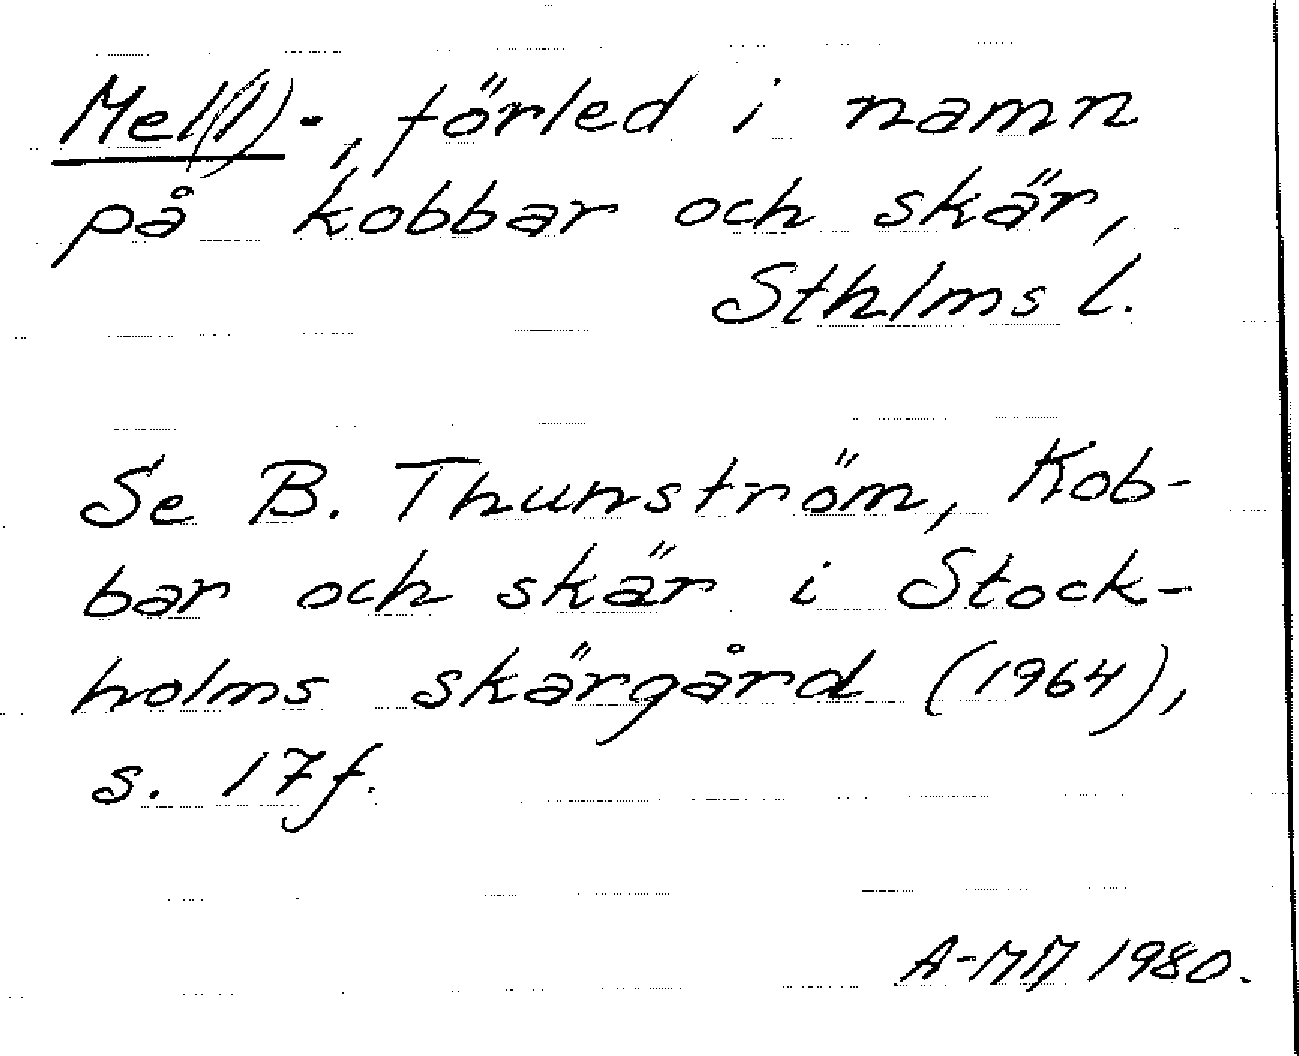 Mel(l)-, förled i namn
på kobbar och skär,
Sthlms l.
Se B. Thunström, Kob-
bar och skär i Stock-
holms skärgård (1964),
s. 17 f.
A-MM 1980.